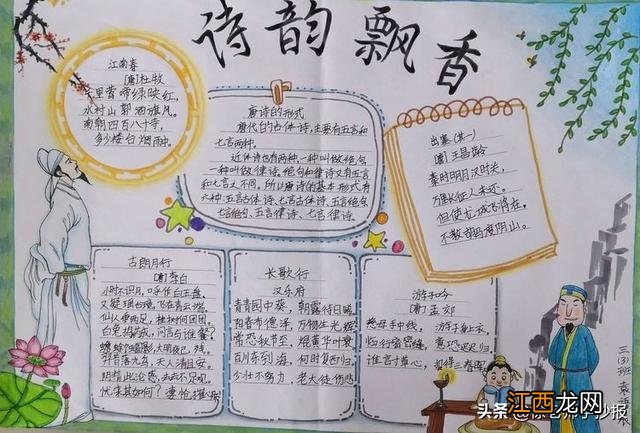 诗韵飘香
江南春
[唐]杜牧
千里莺啼绿映红,
水村山郭酒旗风。
南朝四百八十寺,
多少楼台烟雨中。
唐诗的形式
唐代的古体诗,主要有五言和
七言两种。
近体诗也有两种,一种叫做绝句
一种叫做律诗。绝句和律诗又有五言
和七言之不同。所以唐诗的基本形式有
六种:五言古体诗、七言古体诗、五言绝句、
七言绝句、五言律诗、七言律诗。
出塞(其一)
[唐]王昌龄
秦时明月汉时关,
万里长征人未还。
但使龙城飞将在,
不教胡马度阴山。
古朗月行
[唐]李白
小时不识月,呼作白玉盘。
又疑瑶台镜,飞在青云端。
仙人垂两足,桂树何团团。
白兔捣药成,问言与谁餐?
蟾蜍蚀圆影,大明夜已残。
羿昔落九乌,天人清且安。
阴精此沦惑,去去不足观。
忧来其如何?
长歌行
汉乐府
青青园中葵,朝露待日晞。
阳春布德泽,万物生光辉。
常恐秋节至,焜黄华叶衰。
百川东到海,何时复西归。
少壮不努力,老大徒伤悲
游子吟
[唐]孟郊
慈母手中线,游子身上衣。
临行密密缝,意恐迟迟归。
谁言寸草心,报得三春晖。
三(3)班
头条
江西龙网